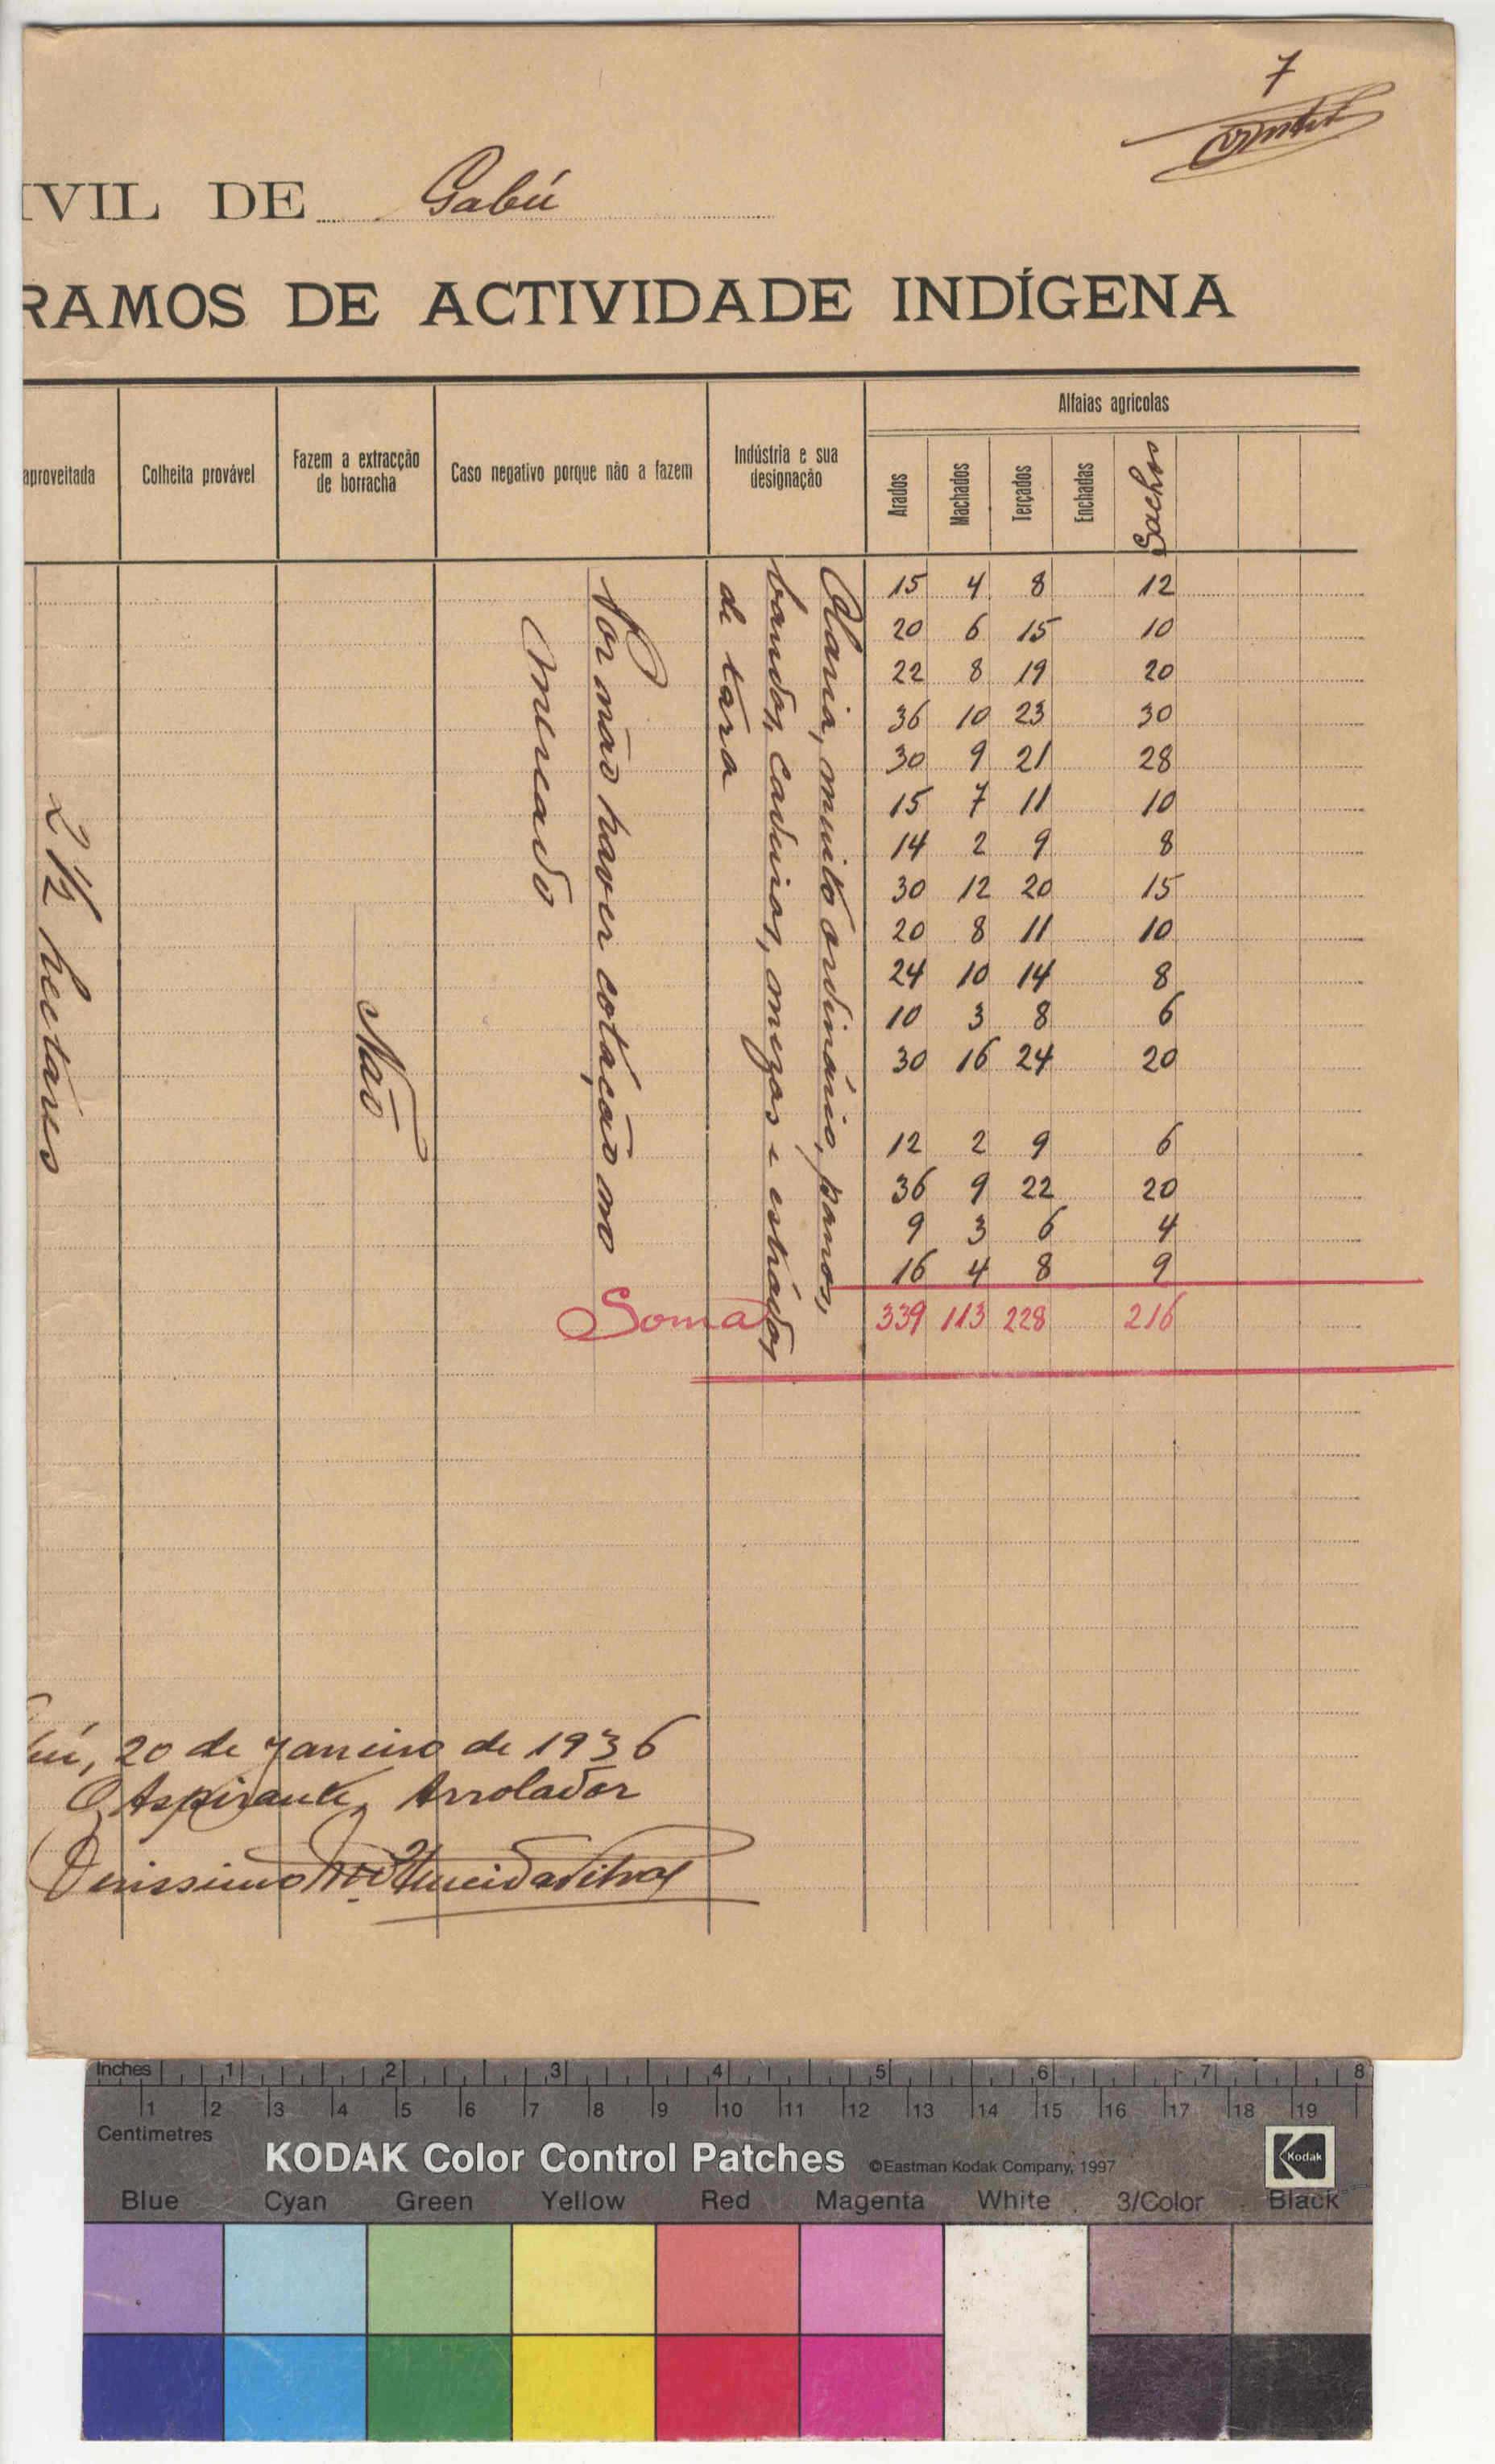 7
IVIL DE Gabú
RAMOS DE ACTIVIDADE INDÍGENA
aproveitada
Colheita provável
Fazem a extracção
de borracha
Caso negativo porque não a fazem
Indústria e sua
designação
Alfaias agrícolas
Arados
Machados
Terçados
Enchadas
Sachos
2 1/2 hectares
Não
Por não haver cotação no
mercado
Olaria, muito ordinário, panos,
bandas, cadeiras, mezas e estrádos
de tara
15 4 8 12
20 6 15 10
22 8 19 20
36 10 23 30
30 9 21 28
15 7 11 10
14 2 9 8
30 12 20 15
20 8 11 10
24 10 14 8
10 3 8 6
30 16 24 20
12 2 9 6
36 9 22 20
9 3 6 4
16 4 8 9
Soma 339 113 228 216
20 de Janeiro de 1936
O Aspirante, Arrolador
Inches 1 2 3 4 5 6 7 8
1 2 3 4 5 6 7 8 9 10 11 12 13 14 15 16 17 18 19
Centimetres
KODAK Color Control Patches ©Eastman Kodak Company, 1997 Kodak
Blue Cyan Green Yellow Red Magenta White 3/Color Black